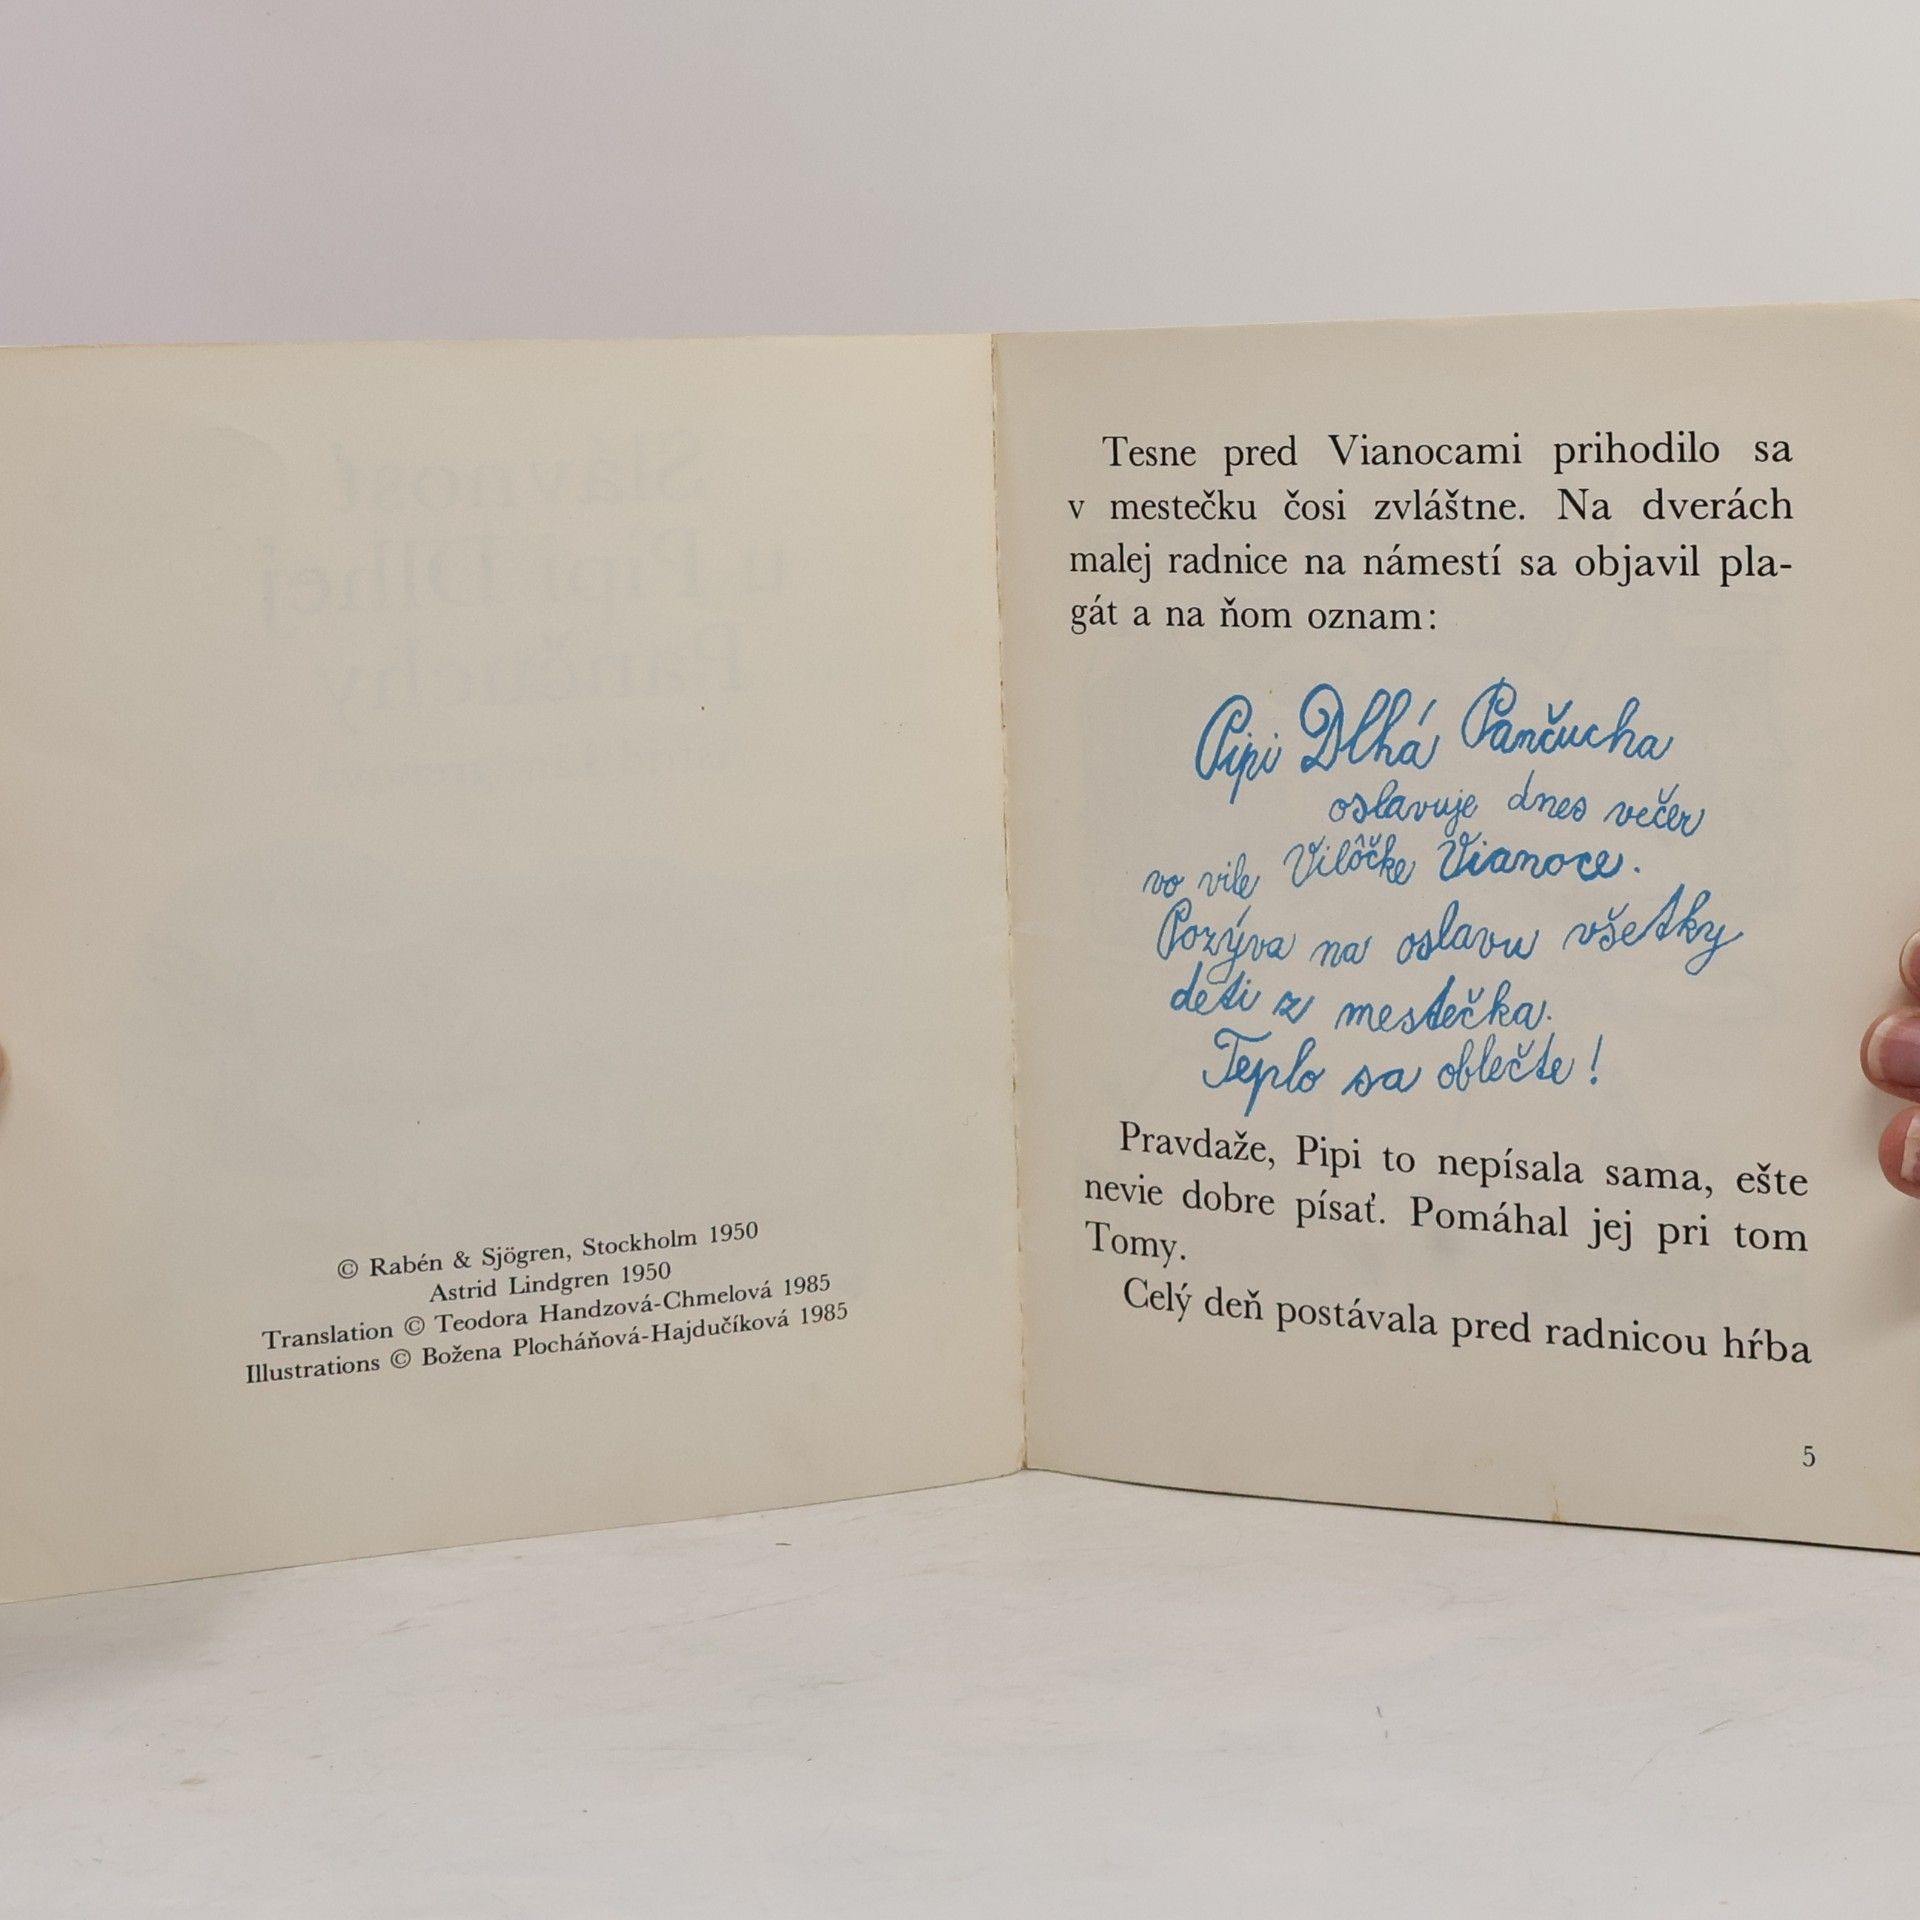 © Rabén & Sjögren, Stockholm 1950
Astrid Lindgren 1950
Translation © Teodora Handzová-Chmelová 1985
Illustrations © Božena Plocháňová-Hajdučíková 1985
Tesne pred Vianocami prihodilo sa
v mestečku čosi zvláštne. Na dverách
malej radnice na námestí sa objavil pla-
gát a na ňom oznam:
Pipi Dlhá Pančucha
oslavuje dnes večer
vo vile Vilôčke Vianoce.
Pozýva na oslavu všetky
deti z mestečka.
Teplo sa oblečte!
Pravdaže, Pipi to nepísala sama, ešte
nevie dobre písať. Pomáhal jej pri tom
Tomy.
Celý deň postávala pred radnicou hŕba
5